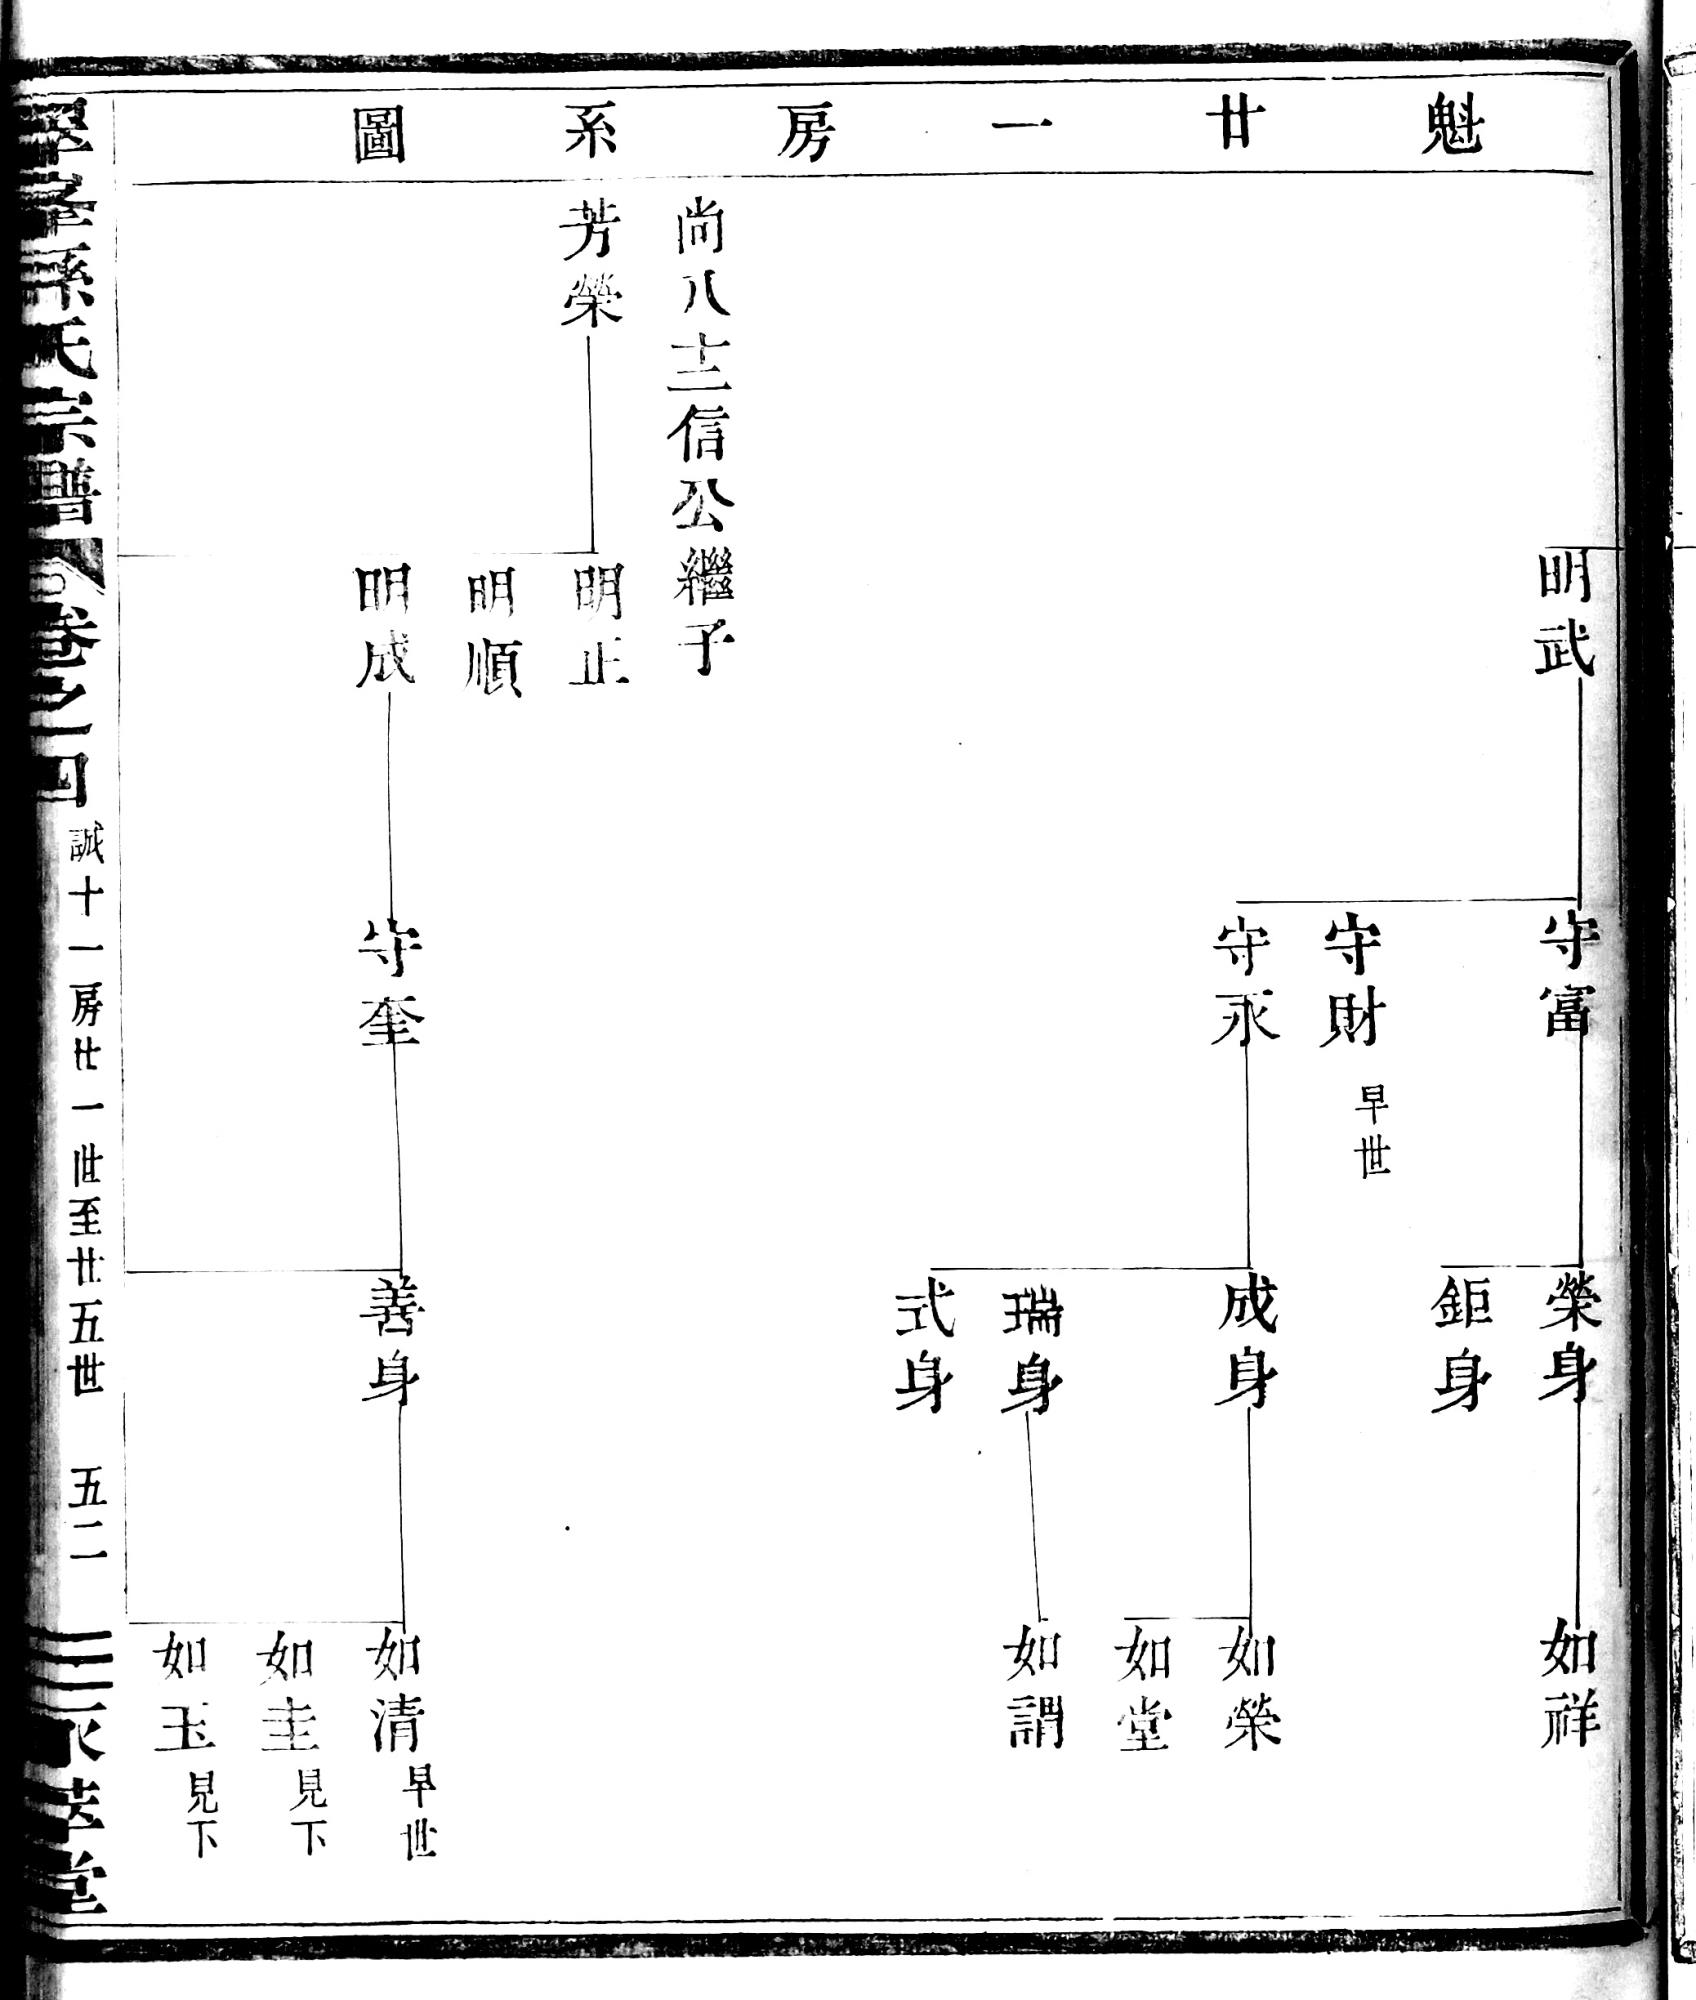 魁廿一房系圖
明武
守富
守財 早世
守永
榮身
鉅身
成身
瑞身
式身
如祥
如榮
如堂
如謂
尚八十二信公繼子
芳榮
明正
明順
明成
守奎
善身
如清 早世
如圭 見下
如玉 見下
孫氏宗譜 卷之四 誠十一房廿一世至廿五世 五二 永萃堂